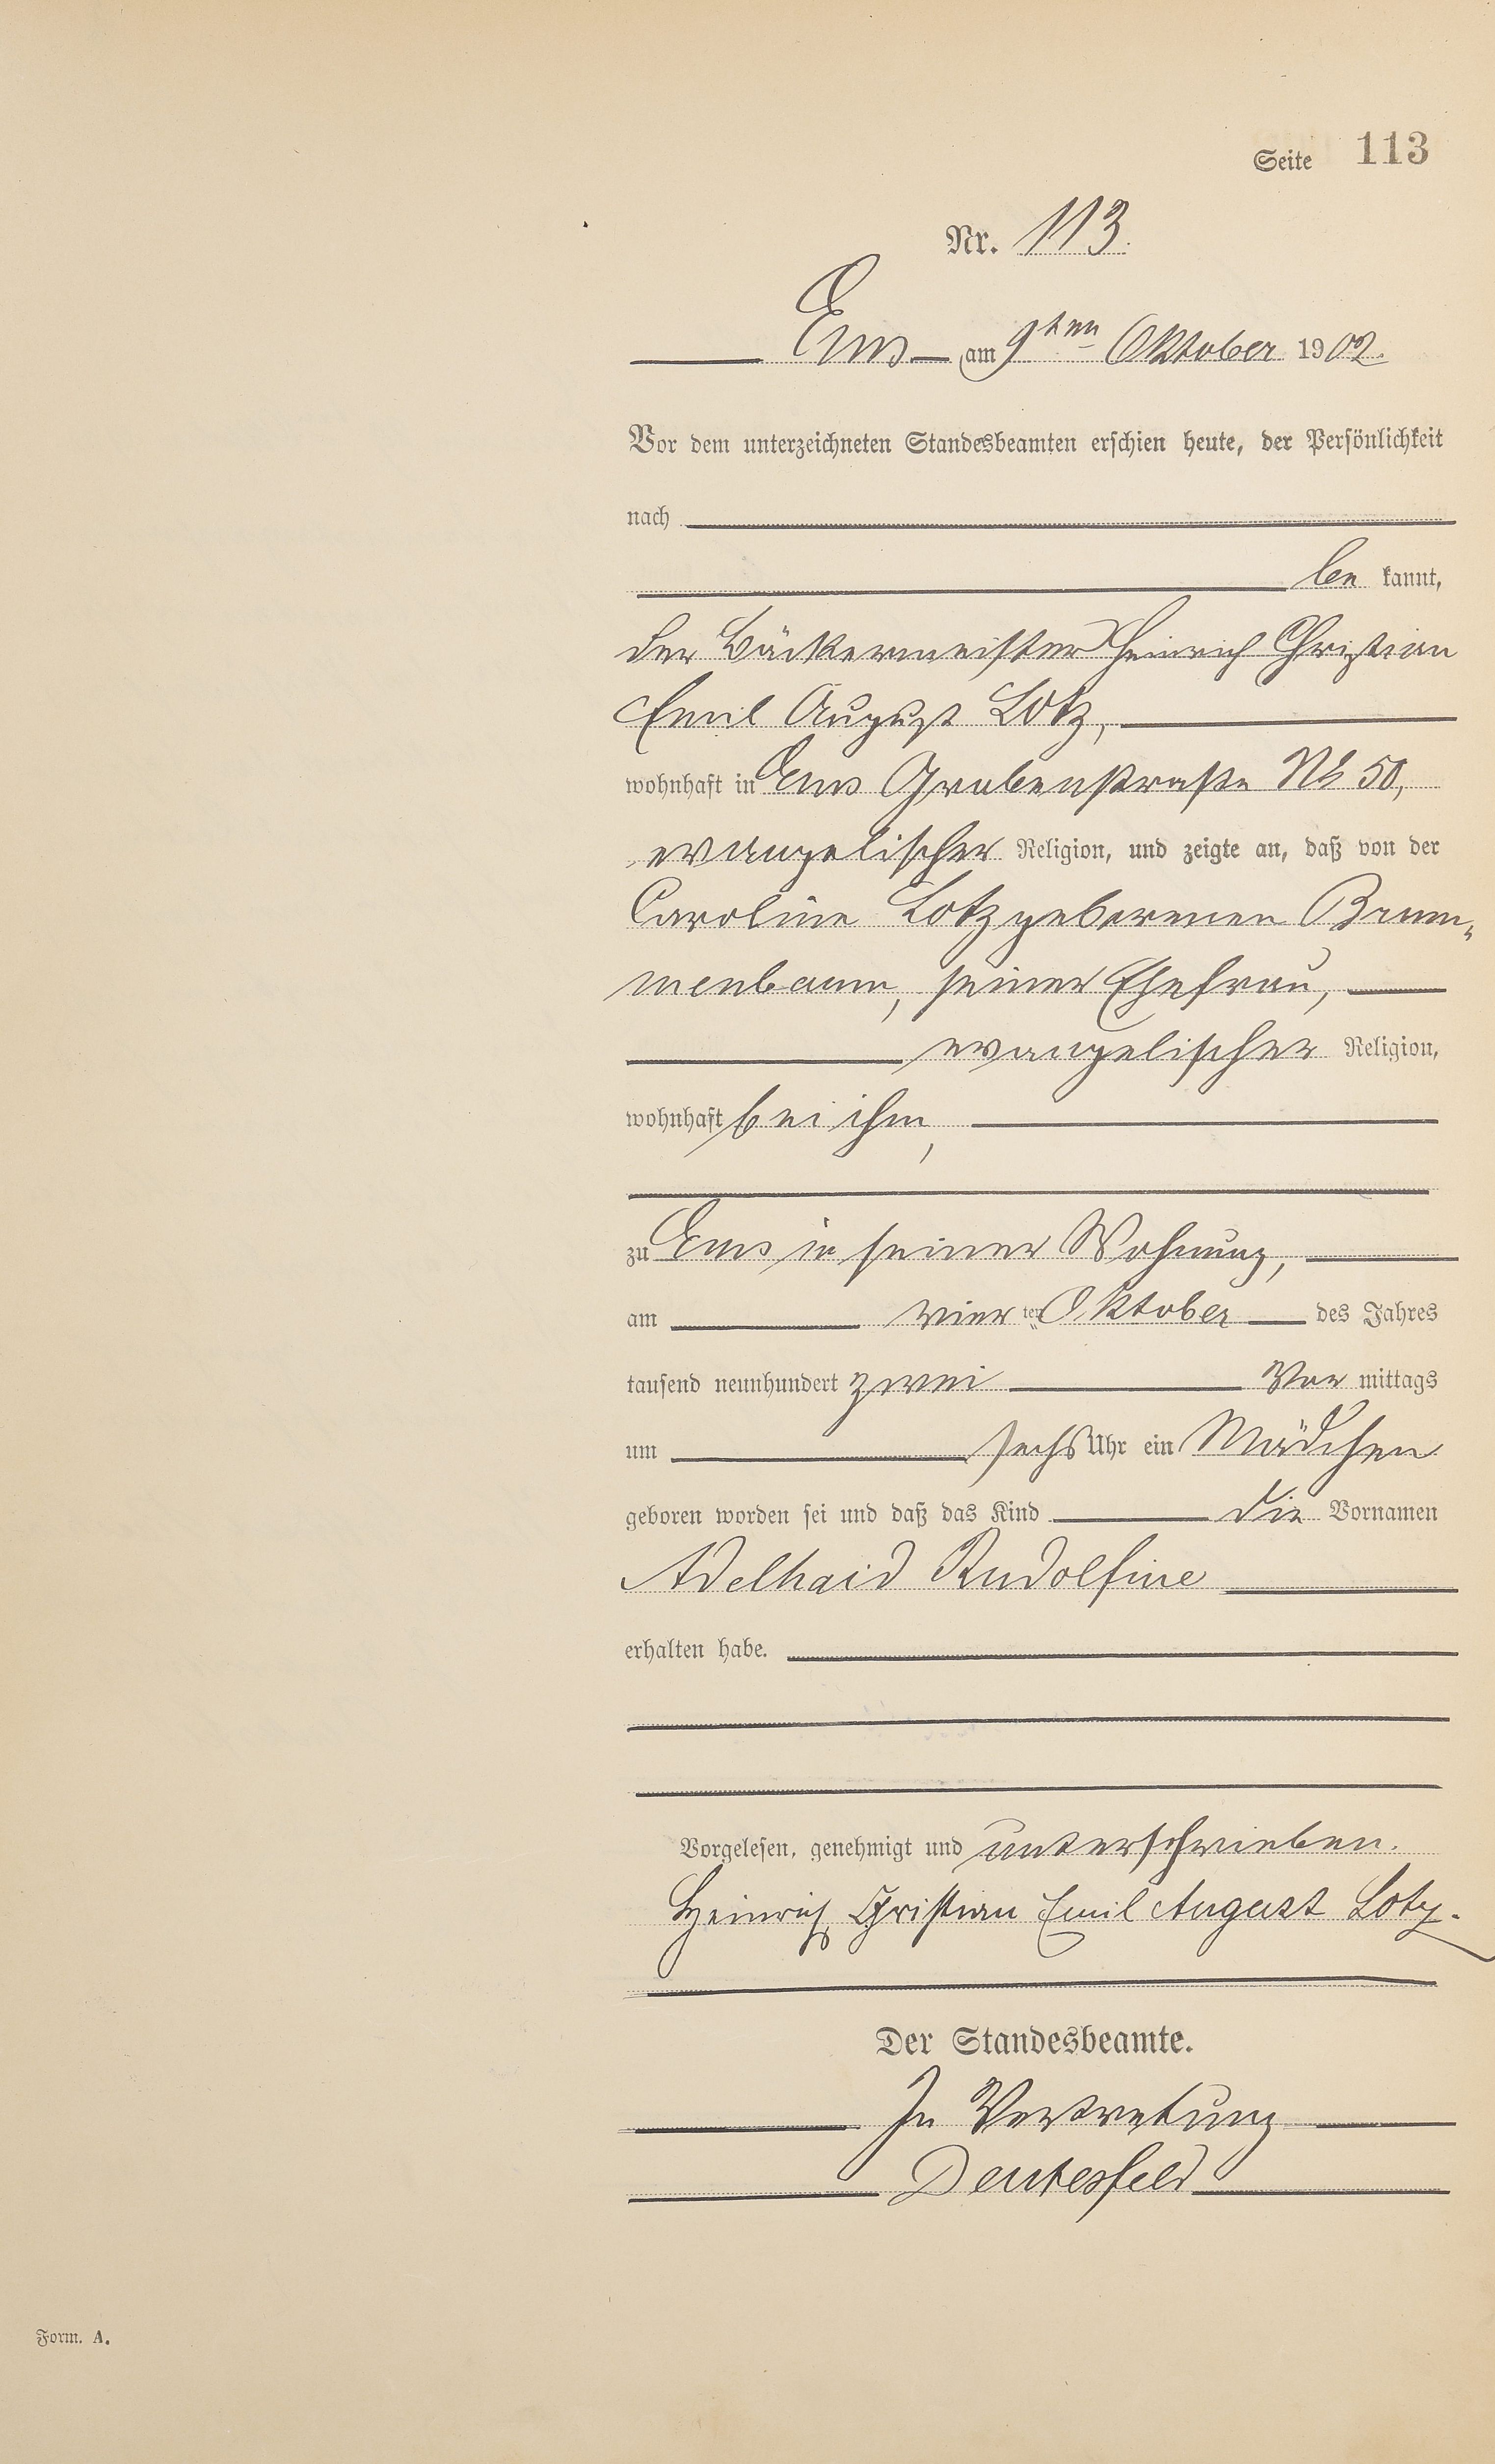 Seite 113
Nr. 113.
Ems am 9ten Oktober 1902.
Vor dem unterzeichneten Standesbeamten erschien heute, der Persönlichkeit
nach
be kannt,
der Bäckermeister Heinrich Christian
Emil August Lotz,
wohnhaft in Ems Grabenstraße No 50,
evangelischer Religion, und zeigte an, daß von der
Caroline Lotz geborenen
menbaum, seiner Ehefrau,
evangelischer Religion,
wohnhaft bei ihm,
zu Ems in seiner Wohnung,
am vier ten Oktober des Jahres
tausend neunhundert zwei Vor mittags
um sechs Uhr ein Mädchen
geboren worden sei und daß das Kind die Vornamen
Adelhaid Rudolfine
erhalten habe.
Vorgelesen, genehmigt und unterschrieben.
Heinrich Christian Emil August Lotz.
Der Standesbeamte.
In Vertretung
Deutesfeld
Form. A.